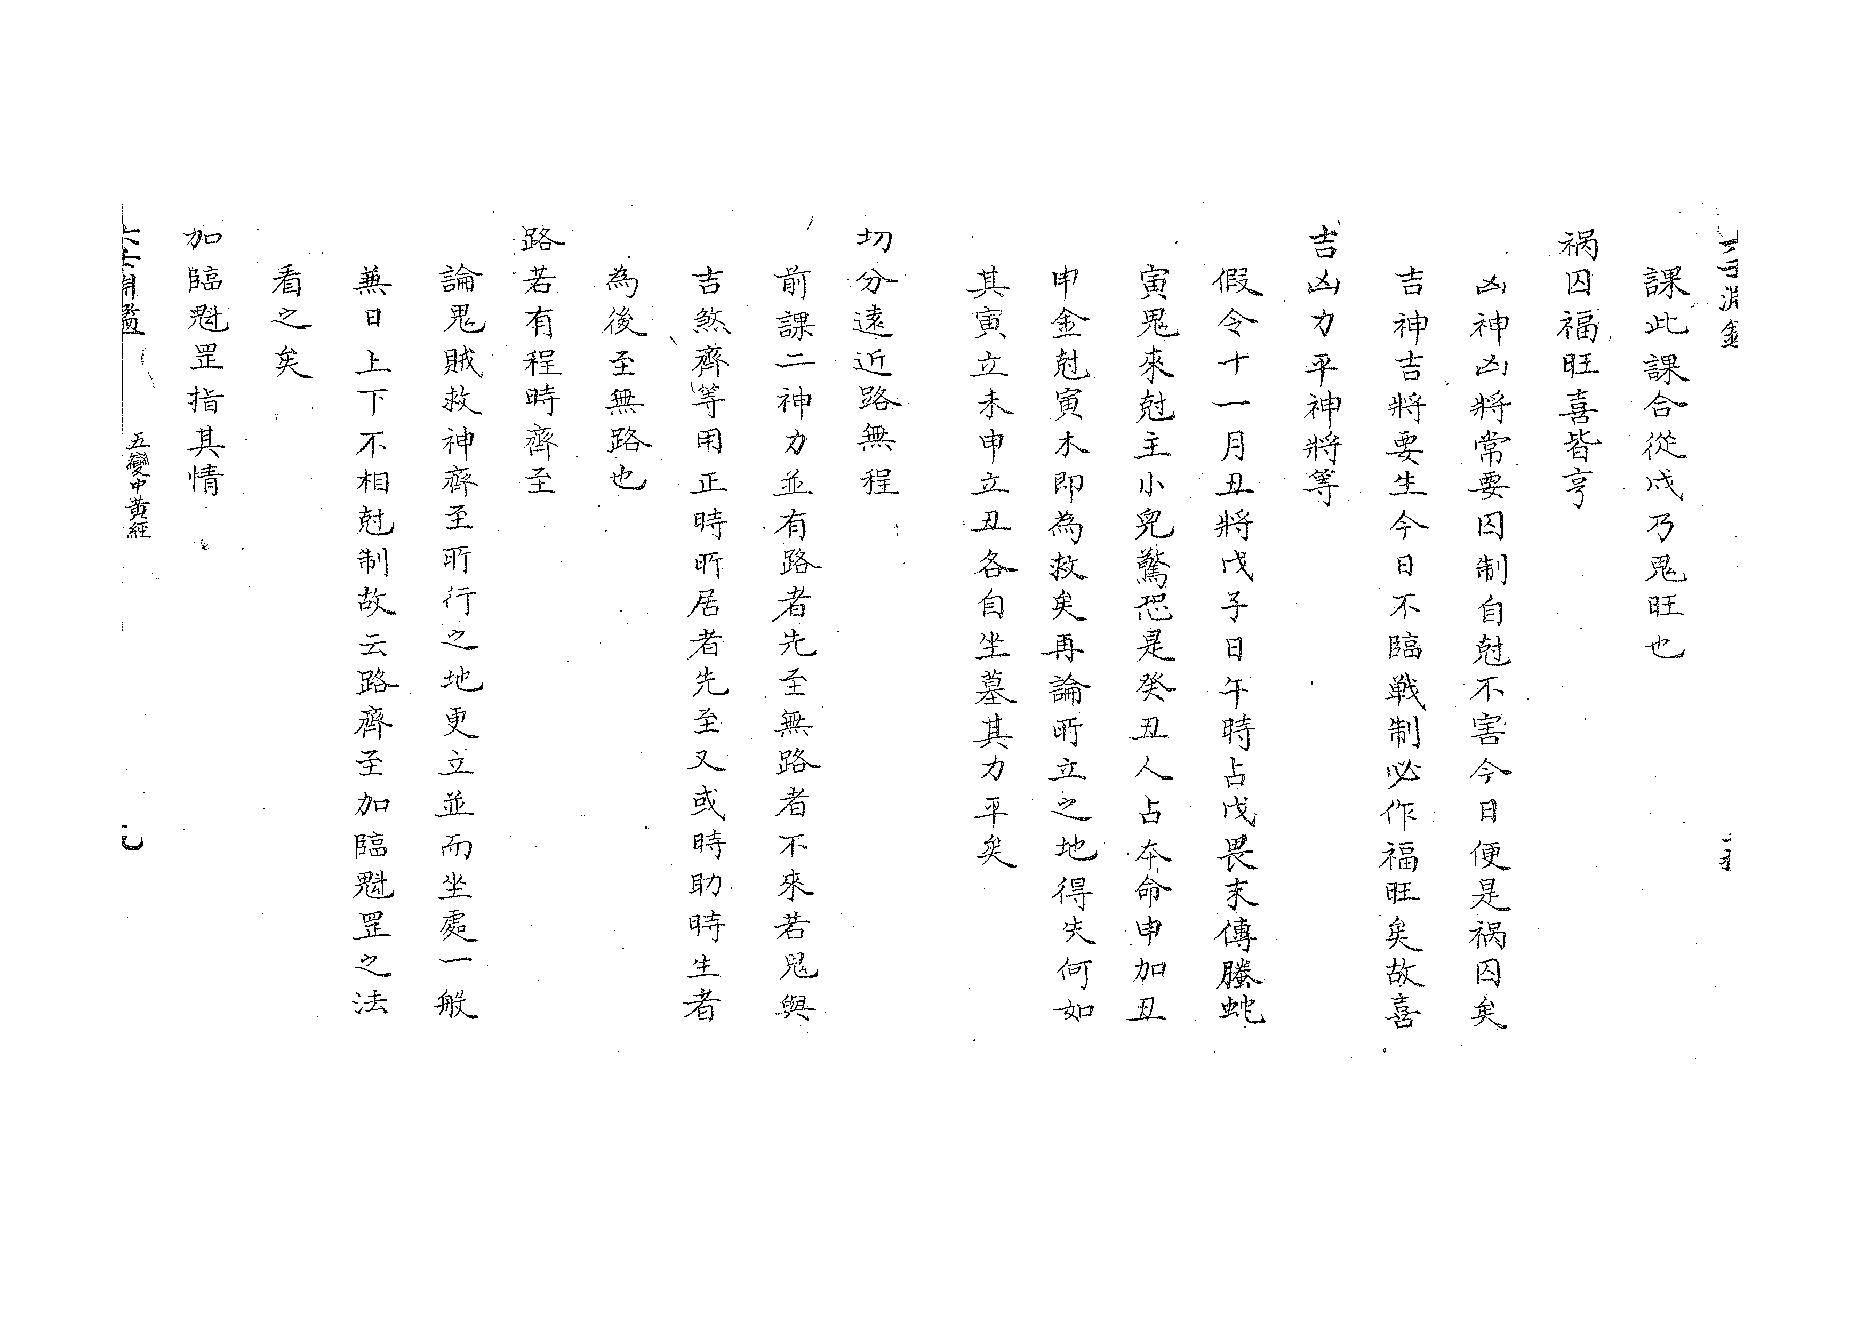 課此課合從戌乃鬼旺也
禍囚福旺喜皆亨
凶神凶將常要囚制自尅不害今日便是禍囚矣
吉神吉將要生今日不臨戰制必作福旺矣故喜
吉凶力平神將等
假令十一月丑將戊子日午時占戊畏末傳螣蛇
寅鬼來尅主小兒驚恐是癸丑人占本命申加丑
申金尅寅木即為救矣再論所立之地得失何如
其寅立未申立丑各自坐墓其力平矣
切分遠近路無程
前課二神力並有路者先至無路者不來若鬼與
吉煞齊等用正時所居者先至又或時助時生者
為後至無路也
路若有程時齊至
論鬼賊救神齊至所行之地更立並而坐處一般
兼日上下不相尅制故云路齊至加臨魁罡之法
看之矣
加臨魁罡指其情
五變中黃經